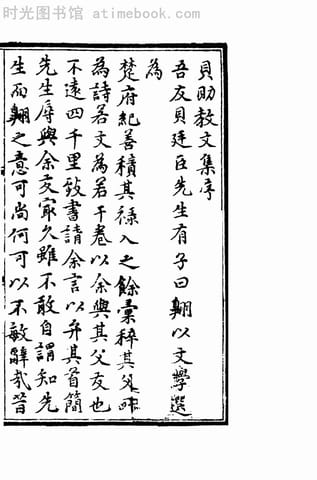 时光图书馆 - atimebook.com
貝助教文集序
吾友貝廷臣先生有子曰翺以文學選
為
楚府紀善積其禄入之餘彙稡其父所
為詩若文為若干卷以余與其父友也
不遠四千里致書請余言以弁其首簡
先生辱與余交㝡久雖不敢自謂知先
生而翺之意可尚何可以不敏辭哉昔